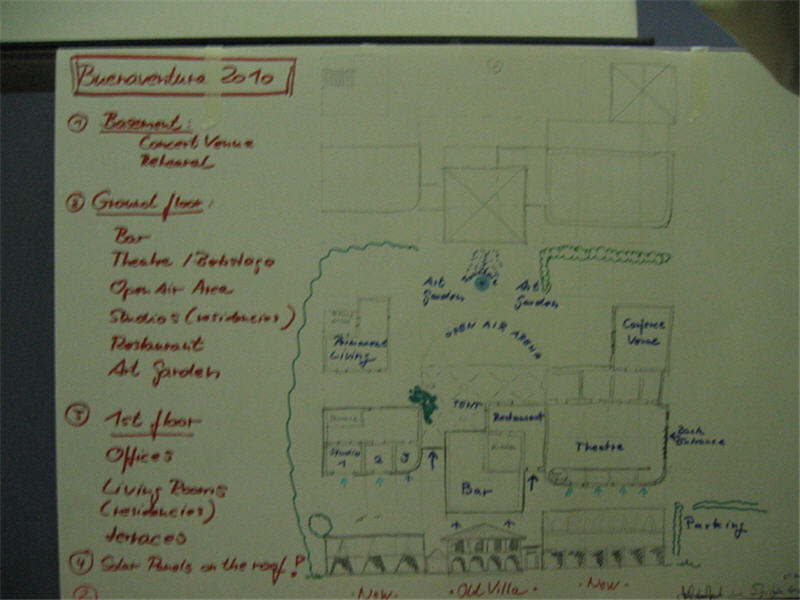 Buenaventura 2010
① Basement:
Concert Venue
Rehearal
② Ground floor:
Bar
Theatre / Backstage
Open Air Area
Studios (residencies)
Restaurant
Art Garden
③ 1st floor
Offices
Living Rooms
(residencies)
terraces
④ Solar Panels on the roof?
Art
Garden
Art
Garden
OPEN AIR ARENA
Permanent
Living
Conference
Venue
TENT
Restaurant
Theatre
Back
Entrance
Studio
1
2
3
Bar
Parking
· New ·
· Old Villa ·
· New ·